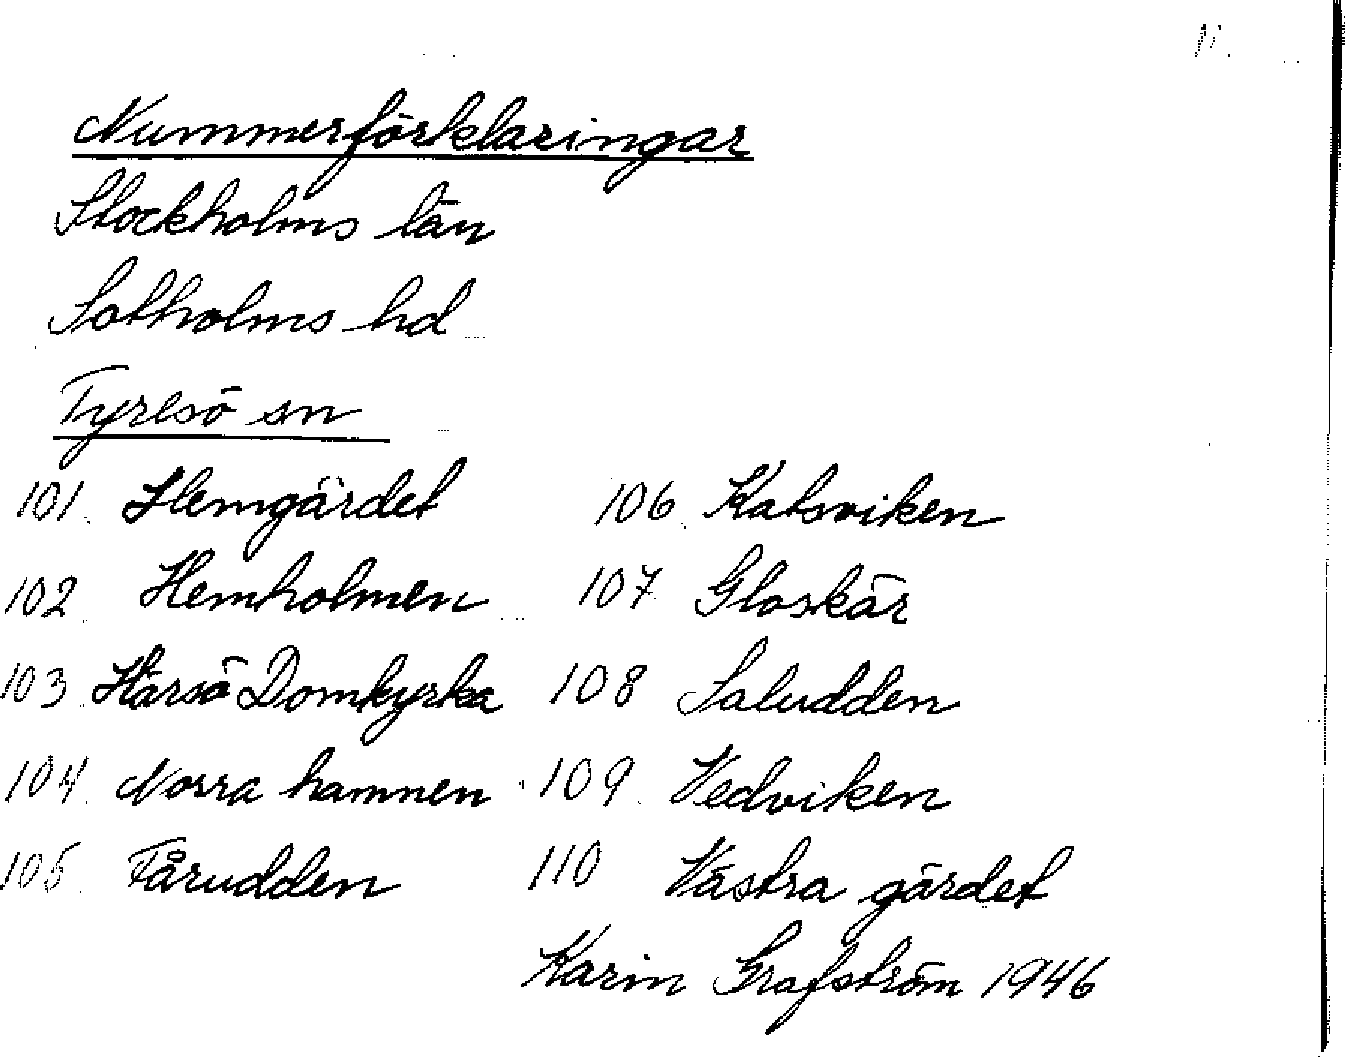 11.
Nummerförklaringar
Stockholms län
Sotholms hd
Tyresö sn
101. Hemgärdet
102. Hemholmen
103. Härsö Domkyrka
104. Norra hamnen
105. Fårudden
106. Katsviken
107. Gloskär
108 Saludden
109. Vedviken
110 Västra gärdet
Karin Grafström 1946